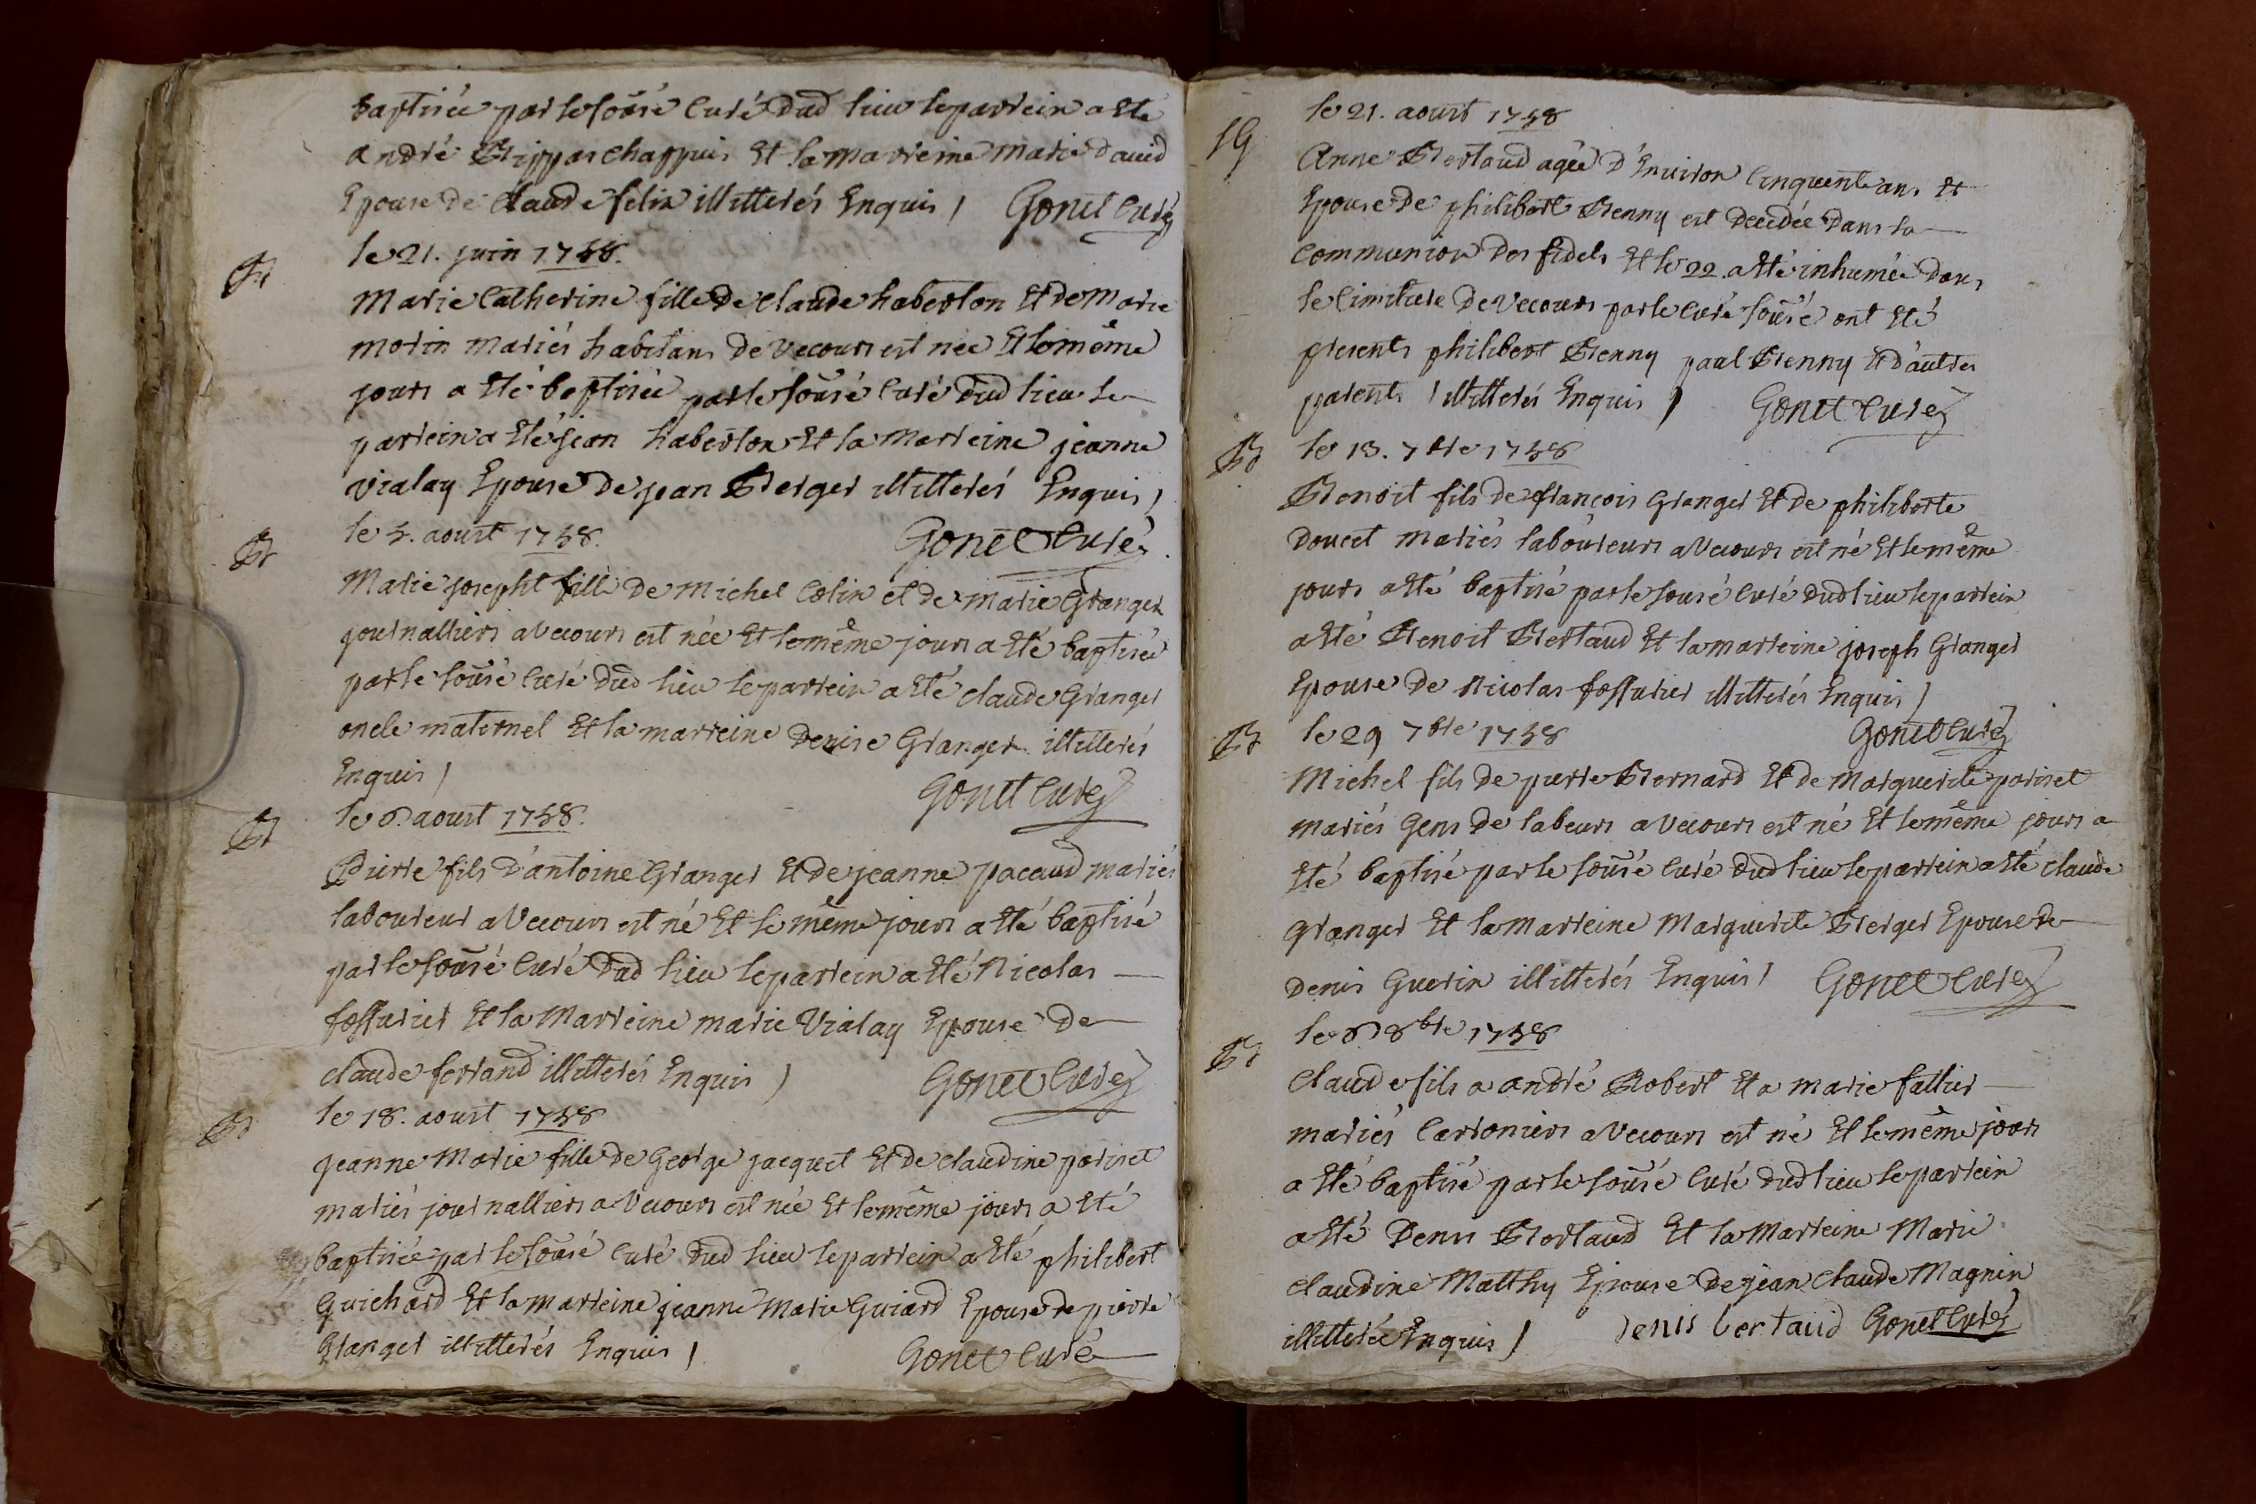 baptisée par le sousé curé dud lieu le parrein a eté
andré Grippas chappuis Et la marreine marie david
Epouse de claude felix illitterés Enquis / Gonet curé
le 21. juin 1758.
Bt
Marie Catherine fille de claude haberton Et de marie
morin mariés habitans de Vecours est née Et le même
jours a Eté baptisée par le sousé curé dud lieu le
parrein a Eté jean haberton Et la marreine jeanne
vialay Epouse de jean Berger illitterés Enquis /
le 5. aoust 1758. Gonet curé
Bt
Marie josepht fille de michel Colin et de marie Granger
journalliers a Vecours est née Et le même jours a Eté baptisée
par le sousé curé dud lieu le parrein a eté claude Granger
oncle maternel Et la marreine Denise Granger illitterés
Enquis / Gonet curé
le 8. aoust 1758.
Bt
Pierre fils d'antoine Granger Et de jeanne pacaud mariés
laboureur a Vecours est né Et le même jours a eté baptisé
par le sousé curé dud lieu le parrein a eté Nicolas
fossurier Et la Marreine marie Vialay Epouse de
claude ferrand illitterés Enquis / Gonet curé
le 18. aoust 1758
Bt
jeanne Marie fille de George jacquet Et de claudine pariset
mariés journalliers a Vecours est née Et le même jours a eté
baptisée par le sousé curé dud lieu le parrein a eté philibert
Guichard Et la marreine jeanne Marie Guiard Epouse de pierre
Granger illitterés Enquis / Gonet curé
le 21. aoust 1758
SG
Anne Bertaud agée d'Environ Cinquente ans Et
Epouse de philibert Benny est decedée dans la
communion des fidels Et le 22. a eté inhumée dans
le Cimitiere de Vecours par le curé sousé ont eté
presents philibert Benny paul Benny Et d'autres
parents illitterés Enquis / Gonet curé
Bt
le 13. 7bre 1758
Benoit fils de françois Granger Et de philiberte
doucet mariés laboureurs a Vecours est né Et le même
jours a eté baptisé par le sousé curé dud lieu le parrein
a eté Benoit Bertaud Et la marreine joseph Granger
Epouse de Nicolas fossurier illitterés Enquis /
Bt
le 29 7bre 1758 Gonet curé
Michel fils de pierre Bernard Et de Marguerite pariset
mariés Gens de labeurs a Vecours est né Et le même jours a
Eté baptisé par le sousé curé dud lieu le parrein a eté claude
Granger Et la marreine Marguerite Berger Epouse de
Denis Guerin illitterés Enquis / Gonet curé
le 8 8bre 1758
Bt
Claude fils a andré Robert Et a marie fallier
mariés Cartoniers a Vecours est né Et le même jours
a eté baptisé par le sousé curé dud lieu le parrein
a eté Denis Bertaud Et la Marreine Marie
claudine Matthy Epouse de jean claude Magnin
illitterée Enquis / denis bertaud Gonet curé